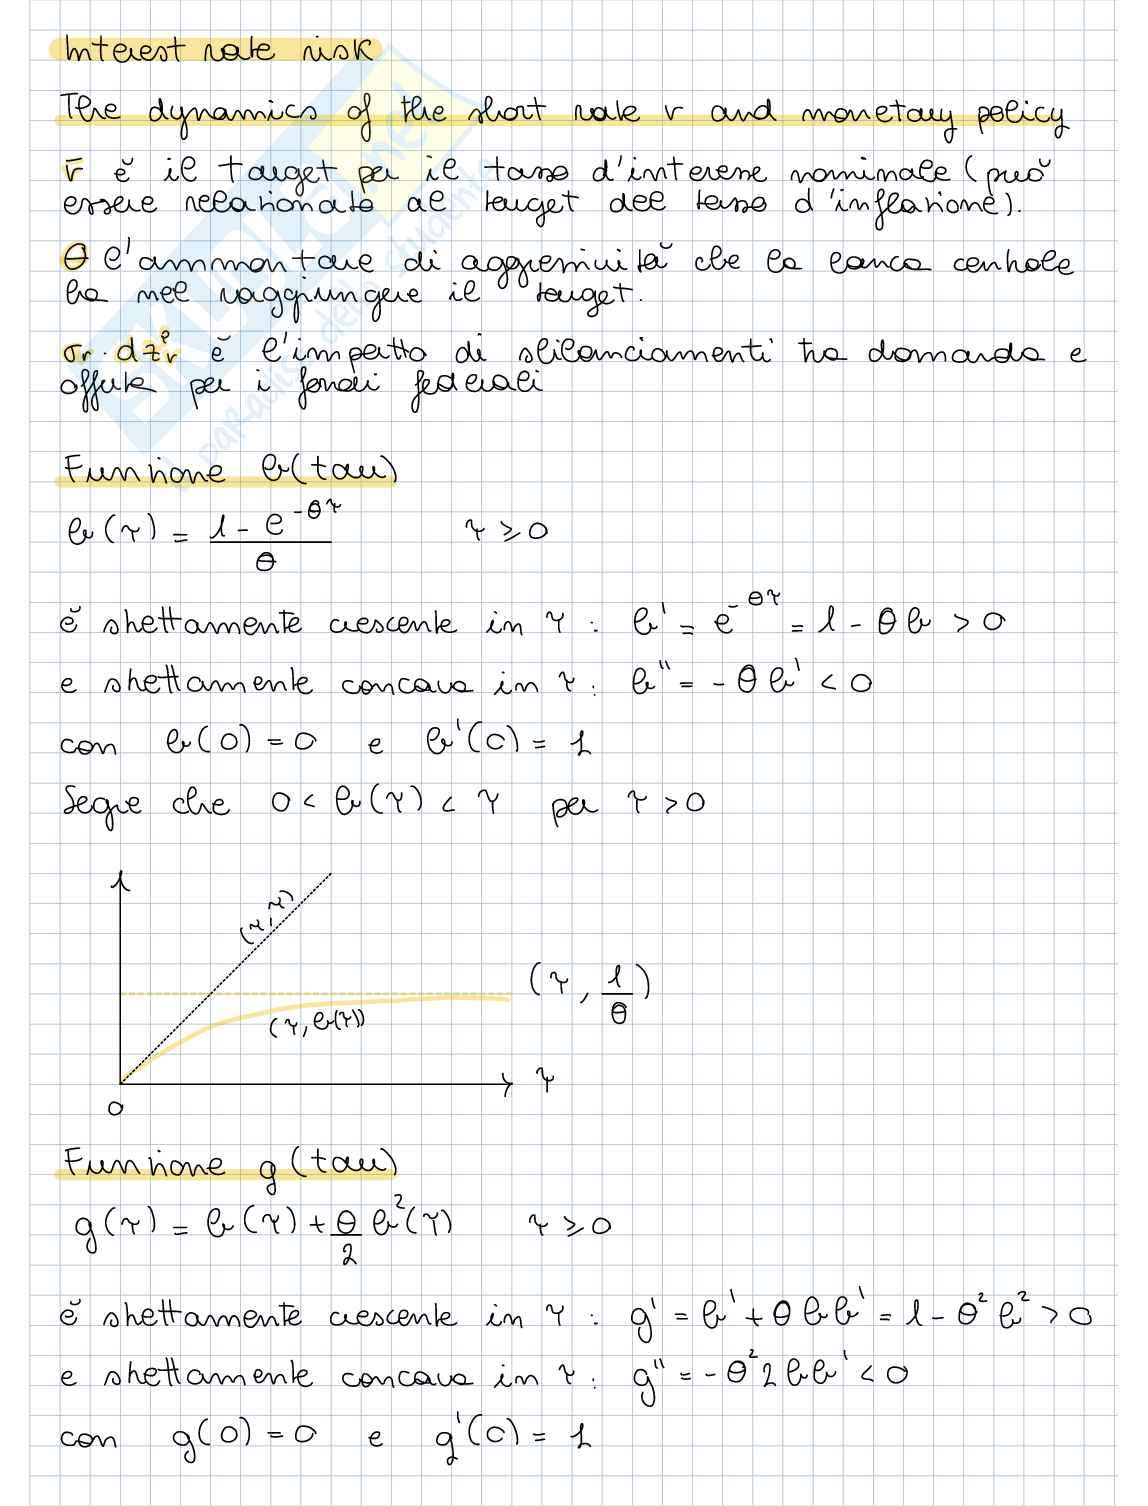 Interest rate risk
The dynamics of the short rate r and monetary policy
r̄ è il target per il tasso d'interesse nominale (può
essere relazionato al target del tasso d'inflazione).
θ l'ammontare di aggressività che la banca centrale
ha nel raggiungere il target.
σr · dzᵖr è l'impatto di sbilanciamenti tra domanda e
offerta per i fondi federali
Funzione b(tau)
b(τ) = (1 - e^-θτ)/θ τ ≥ 0
è strettamente crescente in τ : b' = e^-θτ = 1 - θb > 0
e strettamente concava in τ : b'' = - θ b' < 0
con b(0) = 0 e b'(0) = 1
Segue che 0 < b(τ) < τ per τ > 0
(τ, τ)
(τ, 1/θ)
(τ, b(τ))
τ
0
Funzione g(tau)
g(τ) = b(τ) + θ/2 b²(τ) τ ≥ 0
è strettamente crescente in τ : g' = b' + θ b b' = 1 - θ² b² > 0
e strettamente concava in τ : g'' = - θ² 2 b b' < 0
con g(0) = 0 e g'(0) = 1